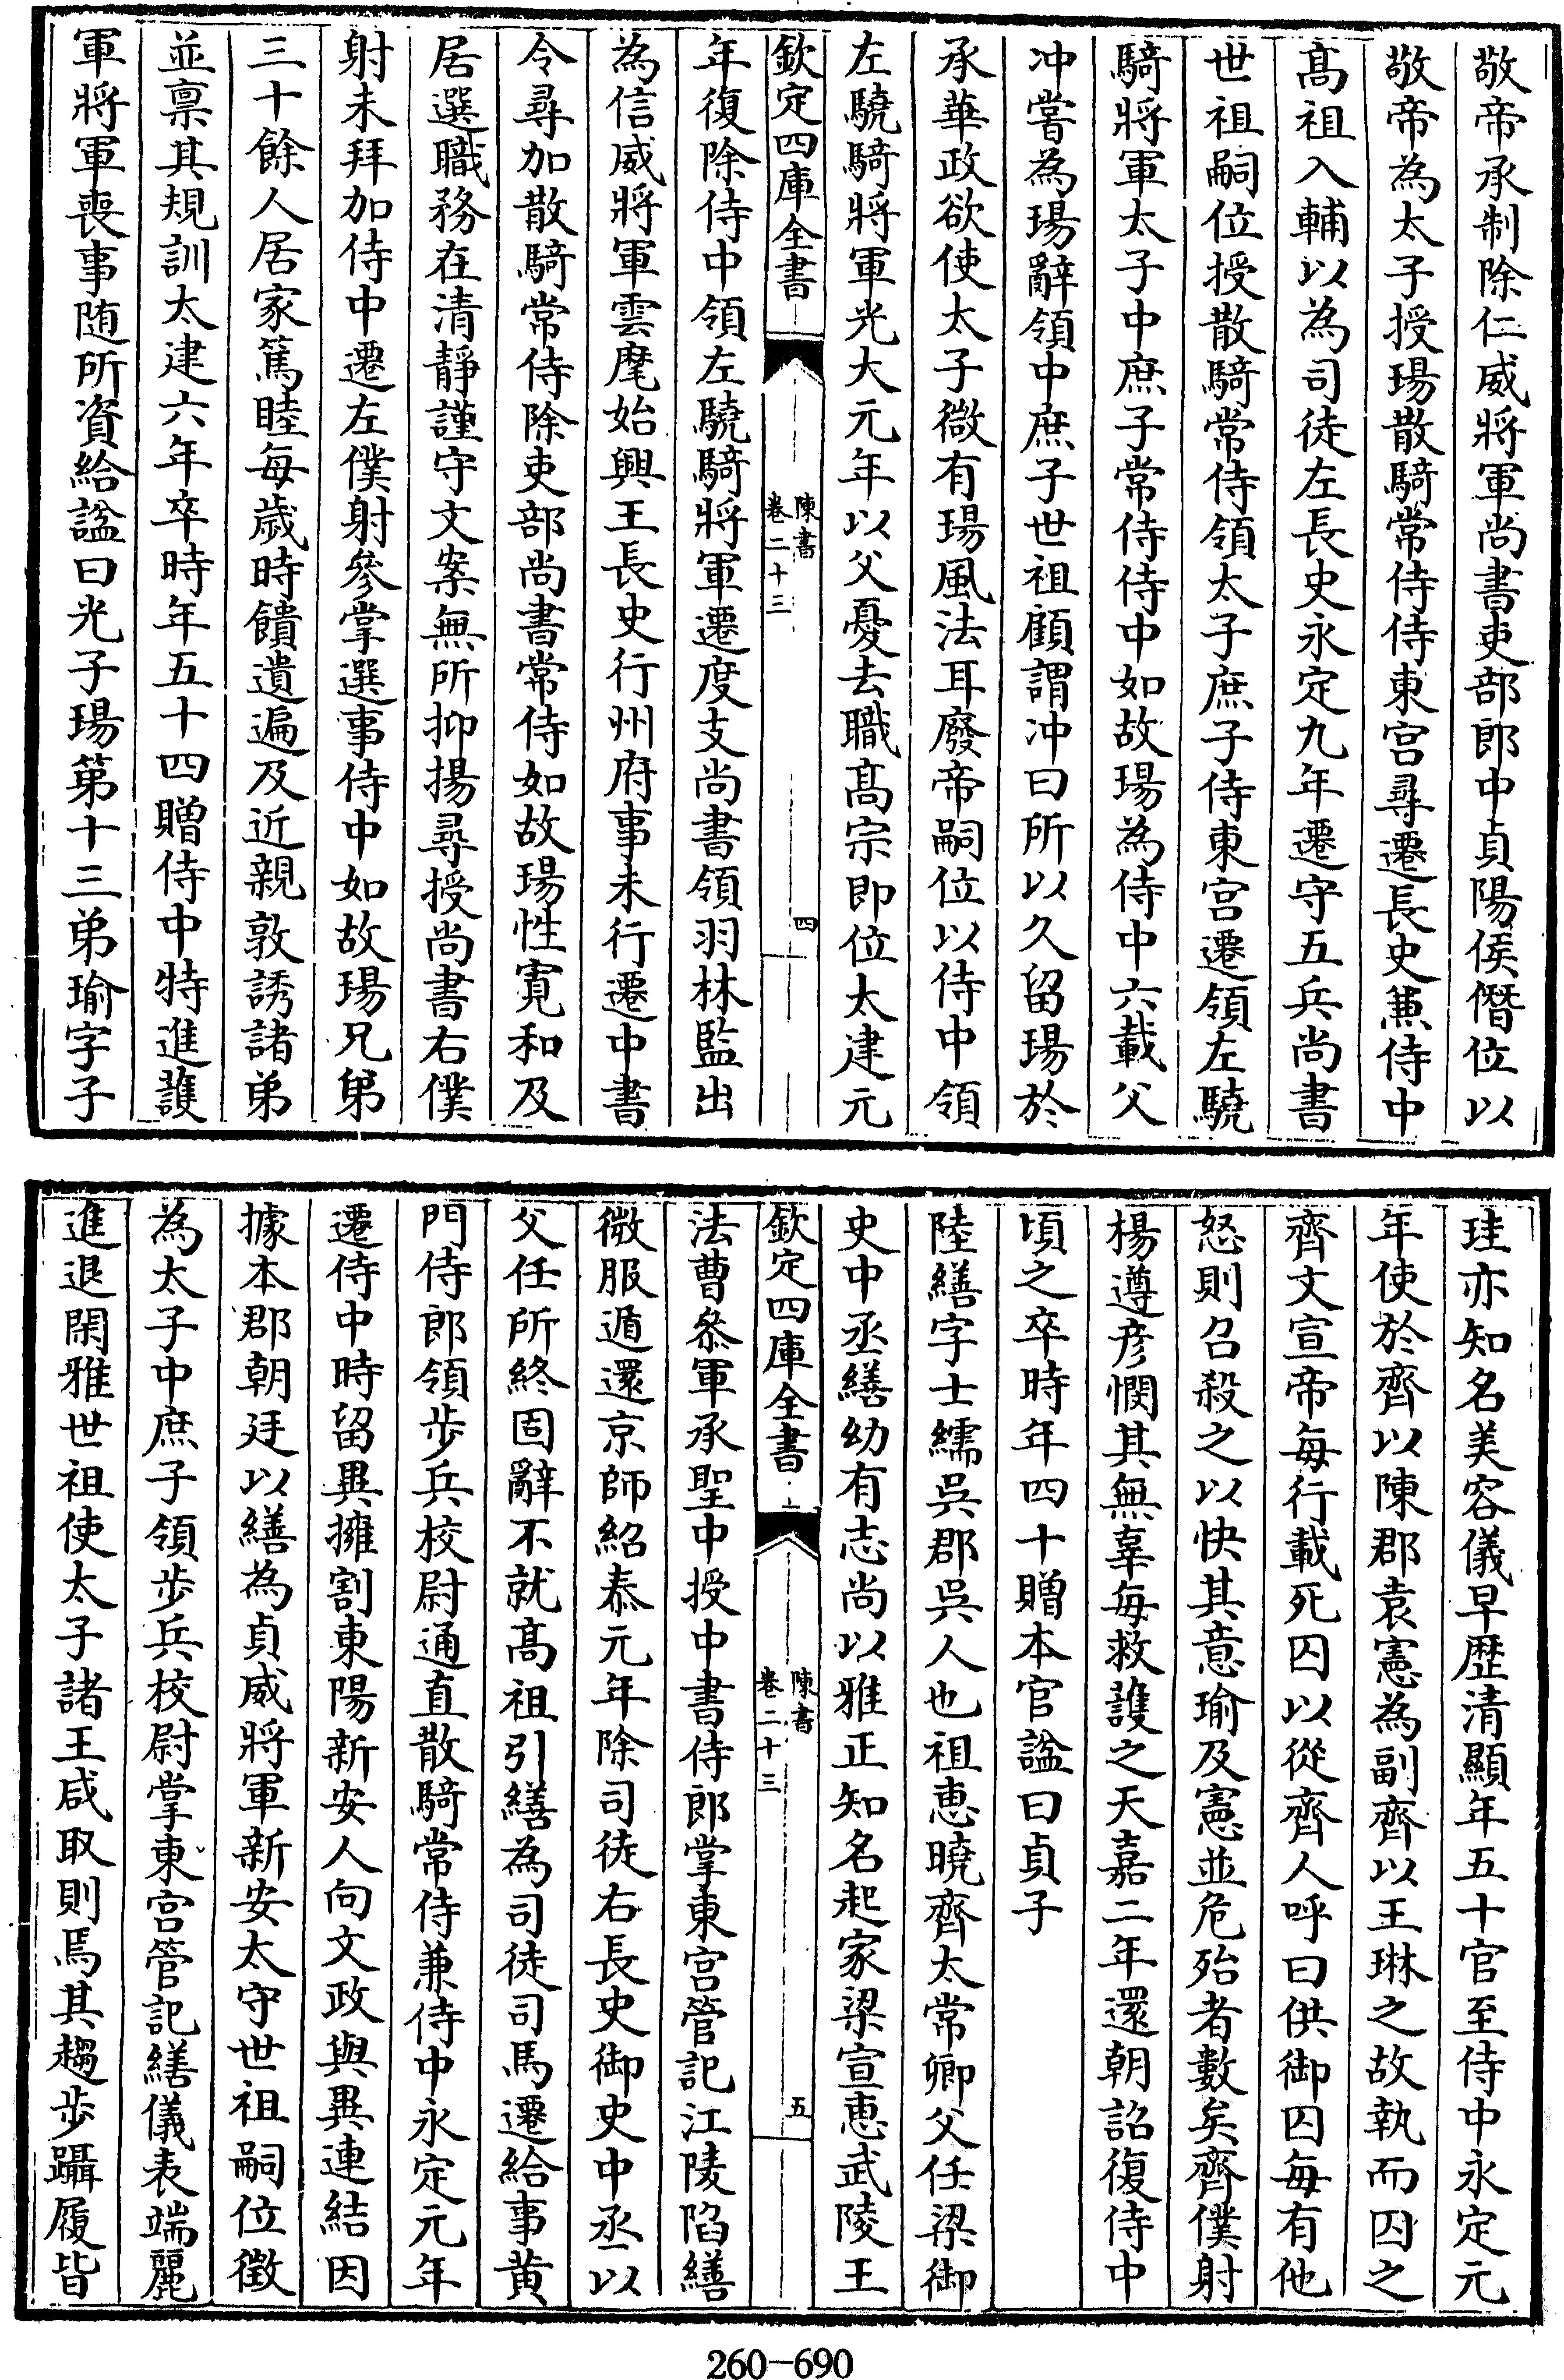 敬帝承制除仁威將軍尚書吏部郎中貞陽侯僭位以
敬帝為太子授瑒散騎常侍侍東宫尋遷長史兼侍中
髙祖入輔以為司徒左長史永定九年遷守五兵尚書
世祖嗣位授散騎常侍領太子庶子侍東宫遷領左驍
騎將軍太子中庶子常侍侍中如故瑒為侍中六載父
冲嘗為瑒辭領中庶子世祖顧謂冲曰所以久留瑒於
承華政欲使太子微有瑒風法耳廢帝嗣位以侍中領
左驍騎將軍光大元年以父憂去職髙宗即位太建元
欽定四庫全書
陳書
卷二十三
四
年復除侍中領左驍騎將軍遷度支尚書領羽林監出
為信威將軍雲麾始興王長史行州府事未行遷中書
令尋加散騎常侍除吏部尚書常侍如故瑒性寛和及
居選職務在清靜謹守文案無所抑揚尋授尚書右僕
射未拜加侍中遷左僕射參掌選事侍中如故瑒兄弟
三十餘人居家篤睦每歲時饋遺遍及近親敦誘諸弟
並禀其規訓太建六年卒時年五十四贈侍中特進護
軍將軍喪事随所資給諡曰光子瑒第十三弟瑜字子
珪亦知名美容儀早歴清顯年五十官至侍中永定元
年使於齊以陳郡袁憲為副齊以王琳之故執而囚之
齊文宣帝每行載死囚以從齊人呼曰供御囚每有他
怒則召殺之以快其意瑜及憲並危殆者數矣齊僕射
楊遵彦憫其無辜每救護之天嘉二年還朝詔復侍中
頃之卒時年四十贈本官諡曰貞子
陸繕字士繻吳郡吳人也祖恵曉齊太常卿父任梁御
史中丞繕幼有志尚以雅正知名起家梁宣恵武陵王
欽定四庫全書
陳書
卷二十三
五
法曹叅軍承聖中授中書侍郎掌東宫管記江陵陷繕
微服遁還京師紹泰元年除司徒右長史御史中丞以
父任所終固辭不就髙祖引繕為司徒司馬遷給事黄
門侍郎領步兵校尉通直散騎常侍兼侍中永定元年
遷侍中時留異擁割東陽新安人向文政與異連結因
據本郡朝廷以繕為貞威將軍新安太守世祖嗣位徵
為太子中庶子領步兵校尉掌東宫管記繕儀表端麗
進退閑雅世祖使太子諸王咸取則焉其趨步躡履皆
260-690